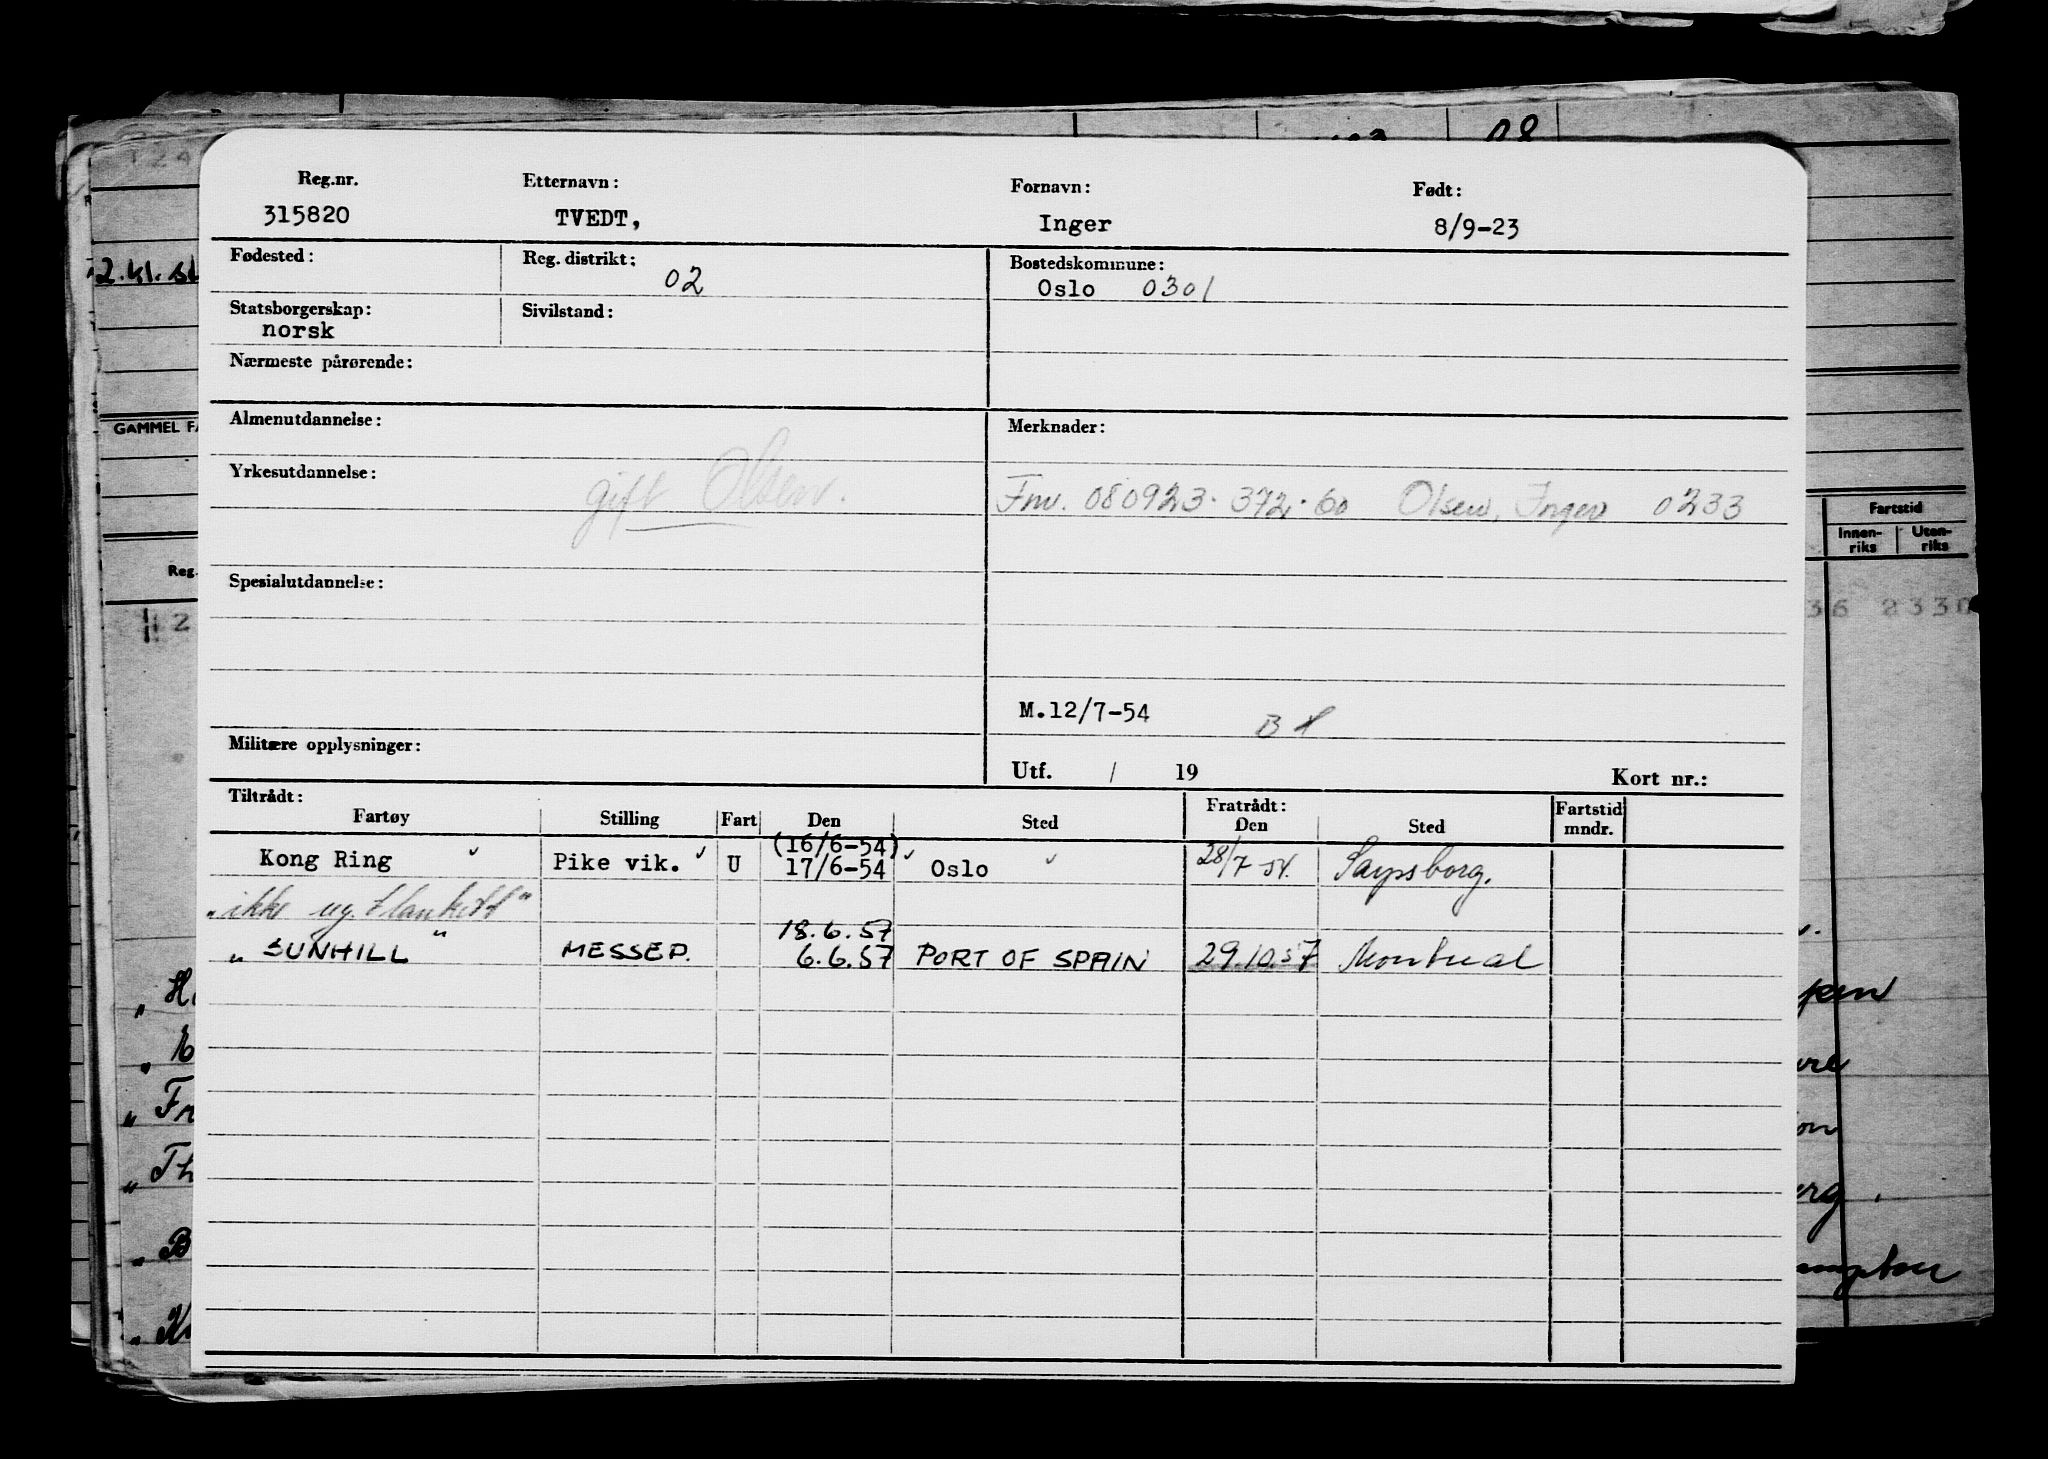 Reg.nr. Etternavn: Fornavn: Født:
315820 TVEDT, Inger 8/9-23
Fødested: Reg. distrikt: 02 Bostedskommune:
Oslo 0301
Statsborgerskap: Sivilstand:
norsk
Nærmeste pårørende:
Almenutdannelse: Merknader:
Yrkesutdannelse:
gift Olsen. Fnv. 080923.372.60 Olsen, Inger 0233
Spesialutdannelse:
M.12/7-54 B
Militære opplysninger:
Utf. / 19 Kort nr.:
Tiltrådt: Fratrådt: Fartstid
Fartøy Stilling Fart Den Sted Den Sted mndr.
(16/6-54)
Kong Ring Pike vik. U 17/6-54 Oslo 28/7 54. Sarpsborg.
"ikke
18.6.57
"SUNHILL" MESSEP. 6.6.57 PORT OF SPAIN 29.10.57 Montreal
08
2.kl.
GAMMEL
Reg.
Fartstid
Innen-riks Uten-riks
36 2330